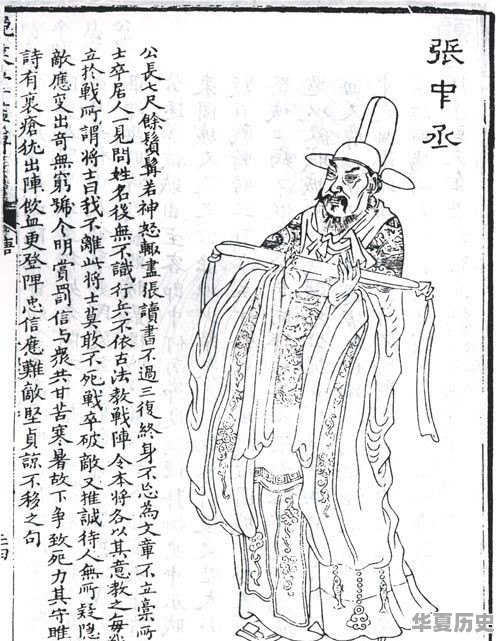 張中丞
公長七尺餘鬚髯若神怒輙盡張讀書不過三復終身不忘為文章不立稾所
士卒居人一見問姓名後無不識行兵不依古法教戰陣令本將各以其意教之每戰
立於戰所謂將士曰我不離此將士莫敢不死戰卒破敵又推誠待人無所疑隱
敵應變出奇無窮號令明賞罰信与衆共甘苦寒暑故下爭致死力其守睢
詩有裹瘡犹出陣飲血更登陴忠信應難敵堅貞諒不移之句
華夏历史